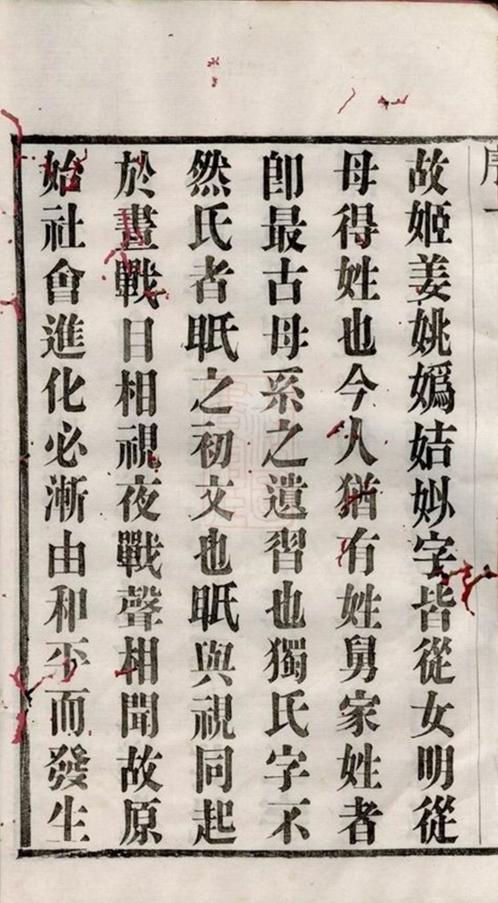 序一
故姬姜姚嬀姞妙字皆從女明從
母得姓也今人猶有姓舅家姓者
卽最古母系之遺習也獨氏字不
然氏者眂之初文也眂與視同起
於晝戰日相視夜戰聲相聞故原
始社會進化必漸由和平而發生